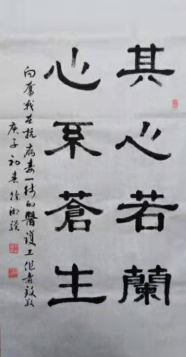 其心若蘭
心系蒼生
向奮戰在抗病毒一線的醫護工作者致敬
庚子初春